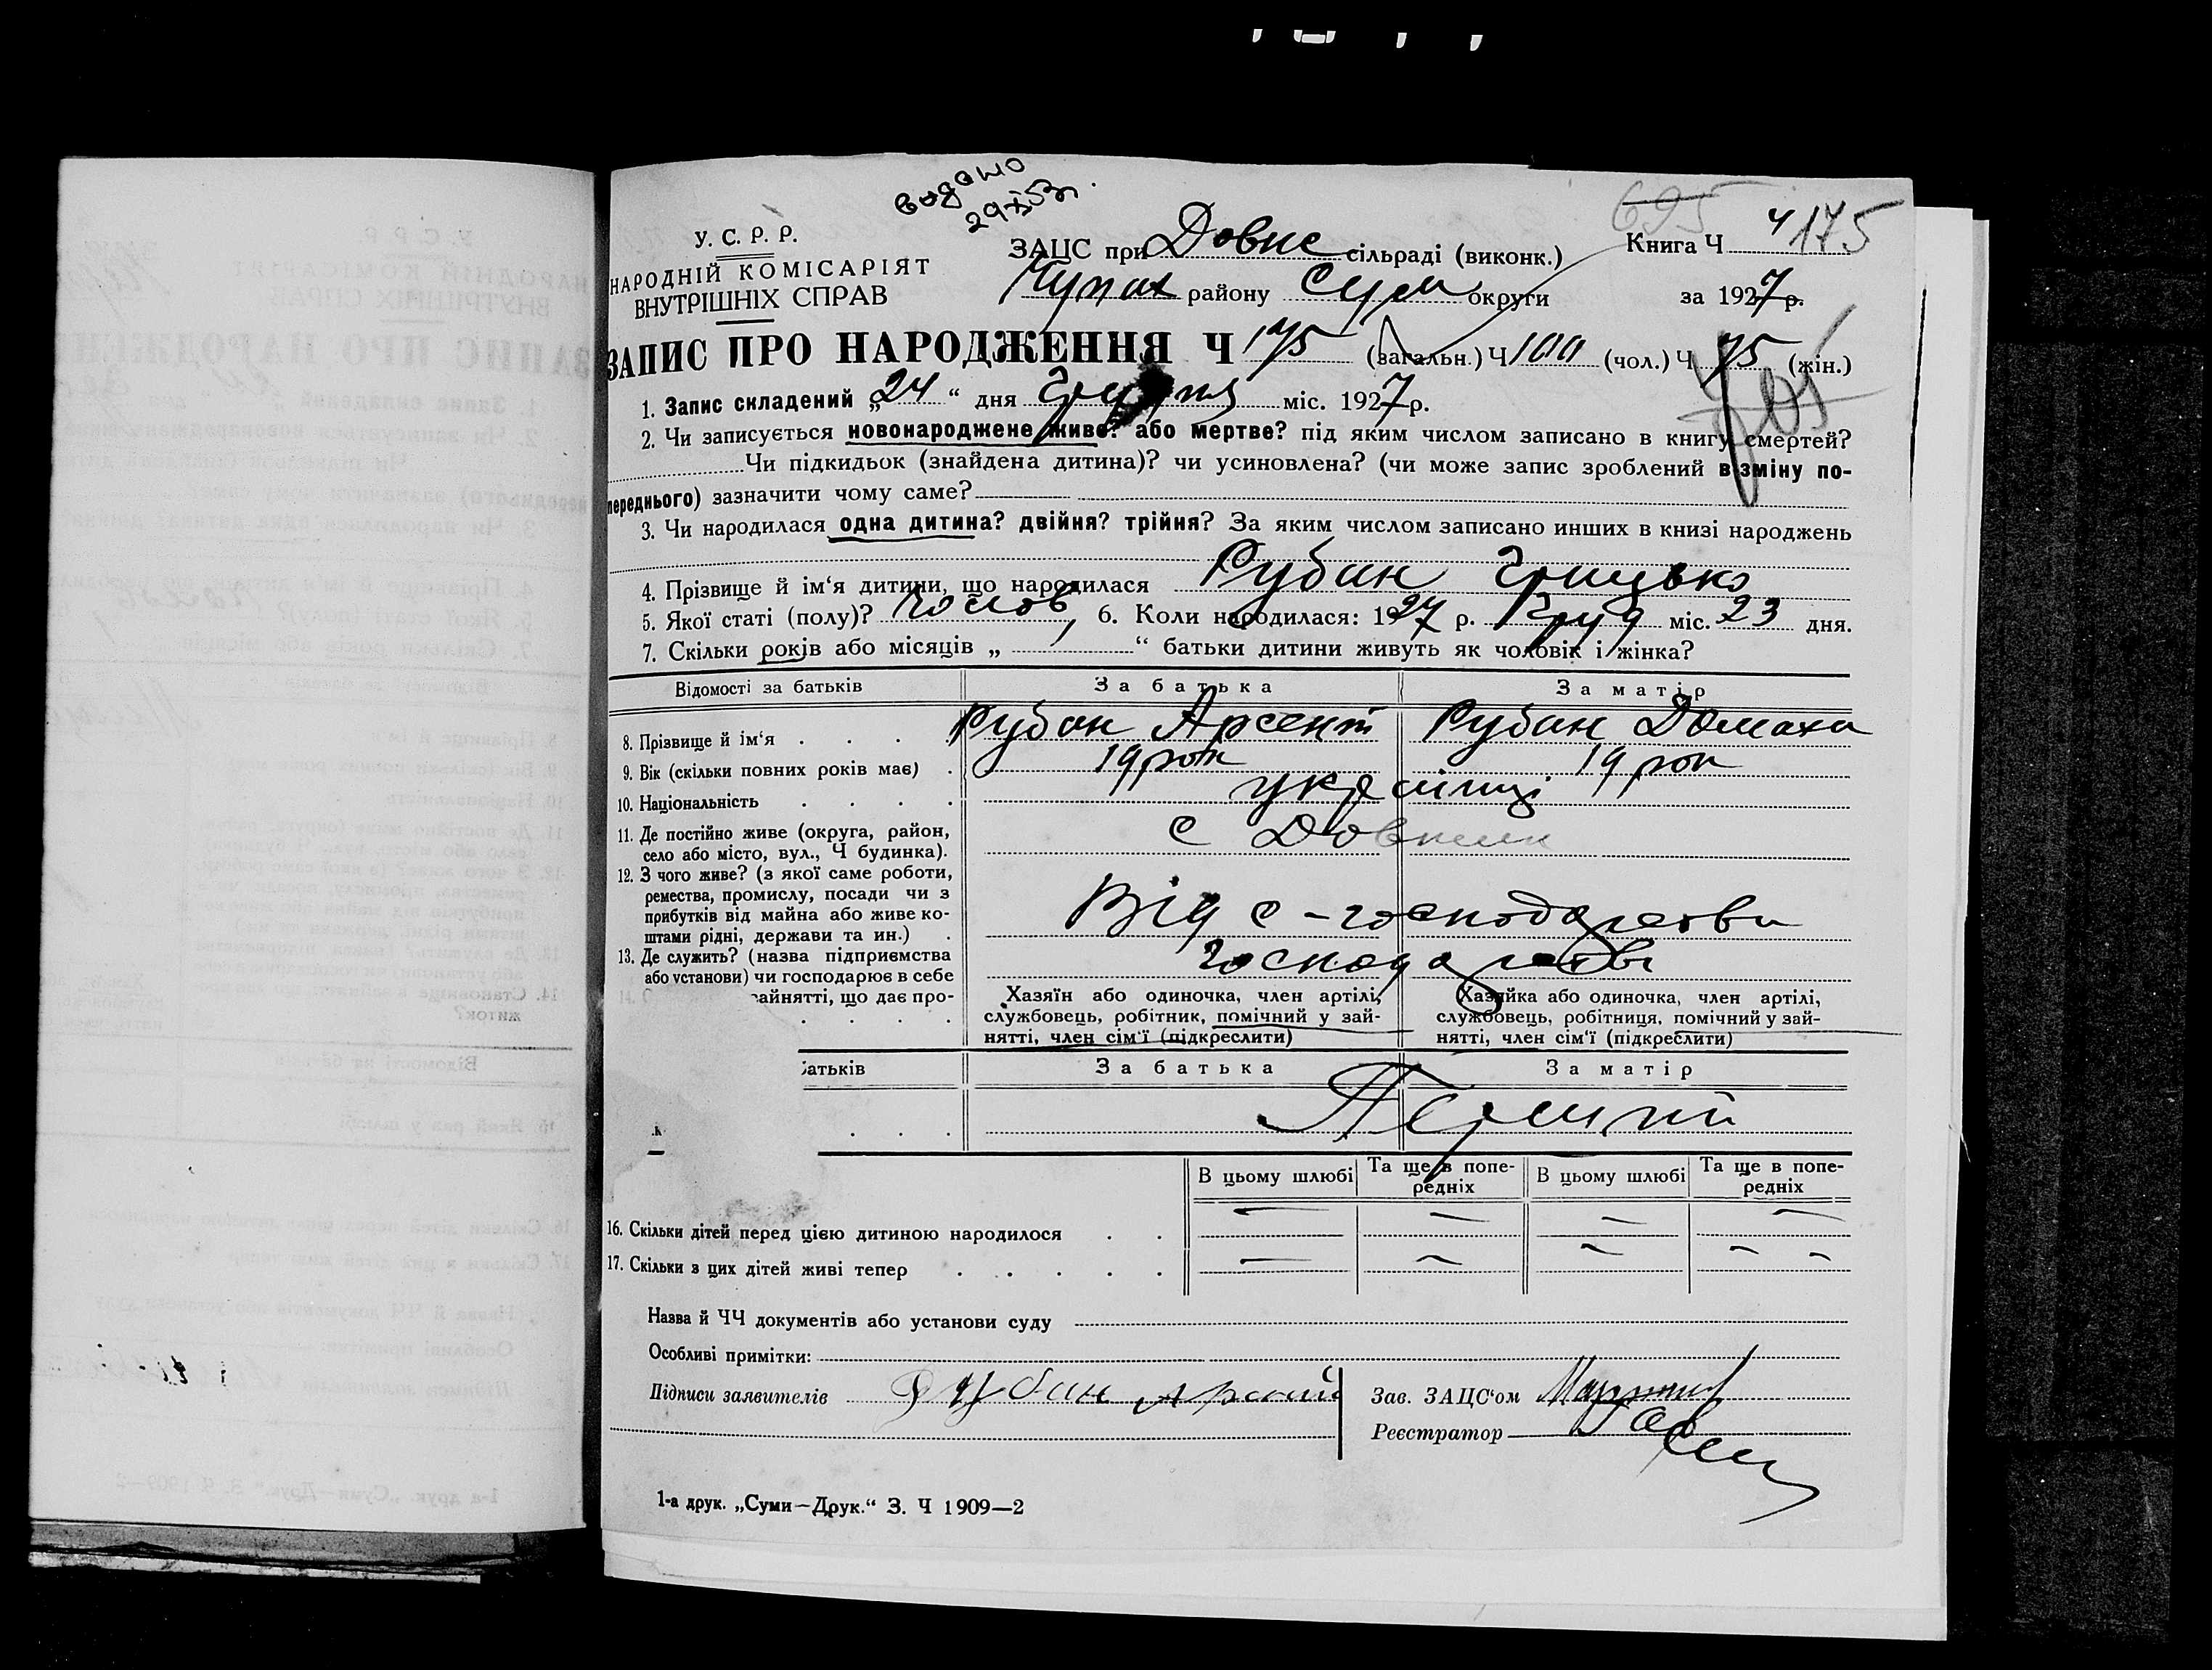 видано
29 XI 53 г.
695
У. С. Р. Р.
НАРОДНІЙ КОМІСАРІЯТ
ВНУТРІШНІХ СПРАВ
ЗАЦС при Довже сільраді (виконк.)
Книга Ч 4 175
Чупах району Сум округи за 1927 р.
ЗАПИС ПРО НАРОДЖЕННЯ Ч 175 (загальн.) Ч 100 (чол.) Ч 75 (жін.)
1. Запис складений „24“ дня Грудня міс. 1927 р.
2. Чи записується новонароджене живе? або мертве? під яким числом записано в книгу смертей?
Чи підкидьок (знайдена дитина)? чи усиновлена? (чи може запис зроблений в зміну по-
переднього) зазначити чому саме?
3. Чи народилася одна дитина? двійня? трійня? За яким числом записано инших в книзі народжень
4. Прізвище й ім‘я дитини, що народилася Рубан Грицько
5. Якої статі (полу)? Чолов 6. Коли народилася: 1927 р. Груд міс. 23 дня.
7. Скільки років або місяців „ 1 “ батьки дитини живуть як чоловік і жінка?
Відомості за батьків За батька За матір
8. Прізвище й ім‘я . . . . Рубан Арсент Рубан Домаха
9. Вік (скільки повних років має) . 19 рок 19 рок
10. Національність . . . . українці
11. Де постійно живе (округа, район,
село або місто, вул., Ч будинка). с Довжик
12. З чого живе? (з якої саме роботи,
ремества, промислу, посади чи з
прибутків від майна або живе ко-
штами рідні, держави та ин.) . Від с-господарства
13. Де служить? (назва підприємства
або установи) чи господарює в себе господарстві
зайнятті, що дає про-
Хазяїн або одиночка, член артілі, службовець, робітник, помічний у зай-
нятті, член сім‘ї (підкреслити)
Хазяйка або одиночка, член артілі, службовець, робітниця, помічний у зай-
нятті, член сім‘ї (підкреслити)
батьків За батька За матір
Перший
В цьому шлюбі Та ще в попе-редніх В цьому шлюбі Та ще в попе-редніх
16. Скільки дітей перед цією дитиною народилося . . — — — —
17. Скільки з цих дітей живі тепер . . . . . — — — — —
Назва й ЧЧ документів або установи суду
Особливі примітки:
Підписи заявителів Рубан Зав. ЗАЦС‘ом
Реєстратор
1-а друк. „Суми—Друк.“ З. Ч 1909—2